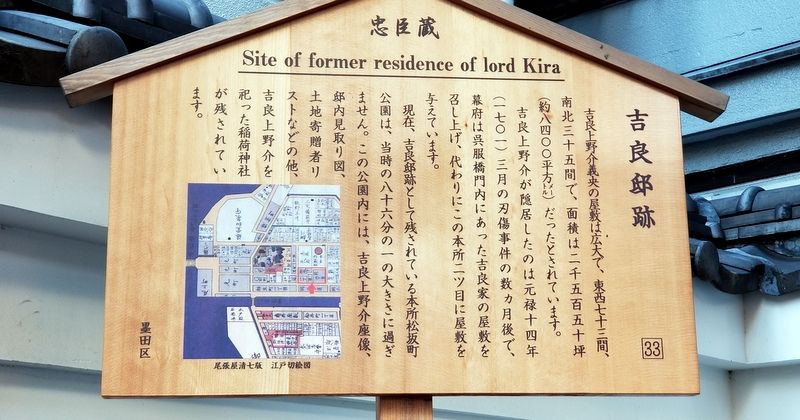 忠臣蔵
Site of former residence of lord Kira
吉良邸跡
吉良上野介義央の屋敷は広大で、東西七十三間、
南北三十五間で、面積は二千五百五十坪
(約八四〇〇平方メートル)だったとされています。
吉良上野介が隠居したのは元禄十四年
(一七〇一)三月の刃傷事件の数ヵ月後で、
幕府は呉服橋門内にあった吉良家の屋敷を
召し上げ、代わりにこの本所二ツ目に屋敷を
与えています。
現在、吉良邸跡として残されている本所松坂町
公園は、当時の八十六分の一の大きさに過ぎ
ません。この公園内には、吉良上野介座像、
邸内見取り図、
土地寄贈者リ
ストなどの他、
吉良上野介を
祀った稲荷神社
が残されてい
ます。
尾張屋清七版 江戸切絵図
墨田区
33